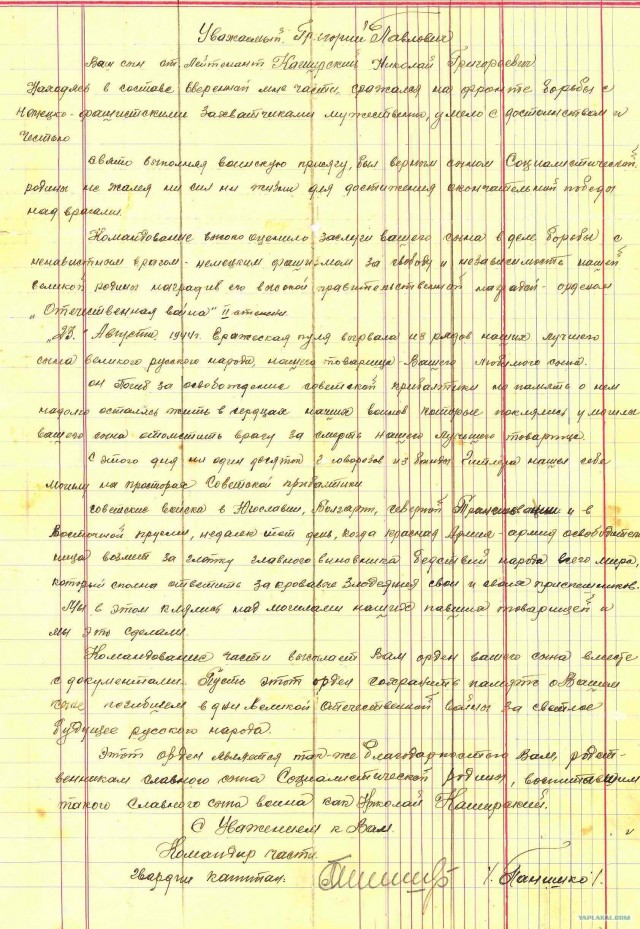 Уважаемый Григорий Павлович
Ваш сын ст. Лейтенант Каширский Николай Григорьевич
Находясь в составе вверенной мне части, сражался на фронте борьбы с
Немецко-фашистскими захватчиками мужественно, умело с достоинством и
честью
свято выполняя воинскую присягу, был верным сыном Социалистической
родины не жалея ни сил ни жизни для достижения окончательной победы
над врагами.
Командование высоко оценило заслуги вашего сына в деле борьбы с
ненавистным врагом - немецким фашизмом за свободу и независимость нашей
великой родины наградив его высокой правительственной наградой - орденом
„Отечественная война" II степени.
„23." Августа 1944 г. Вражеская пуля вырвала из рядов наших лучшего
сына великого русского народа, нашего товарища Вашего любимого сына.
он Погиб за освобождение советской прибалтики но память о нем
надолго осталась жить в сердцах наших воинов которые поклялись у могилы
вашего сына отомстить врагу за смерть нашего лучшего товарища.
С этого дня ни один десяток из банды Гитлера нашли себе
могилу на просторах Советской прибалтики
советские войска в Югославии, Болгарии, северной и в
Восточной пруссии, недалек тот день, когда Красная Армия - армия освободитель
ница возьмет за глотку главного виновника бедствий народа всего мира,
который сполна ответить за кровавые злодеяния свои и своих приспешников.
Мы в этом клялись над могилами наших павших товарищей и
мы это сделаем.
Командование части высылает Вам орден вашего сына вместе
с документами. Пусть этот орден сохранить память о Вашем
сыне погибшем в дни Великой Отечественной войны за светлое
будущее русского народа.
Этот орден является так-же благодарностью Вам, родст-
венникам славного сына Социалистической родины, воспитавшим
такого славного сына воина как Николай Каширский.
С Уважением к Вам.
Командир части
гвардии капитан: /. Панишко /.
YAPLAKAL.COM